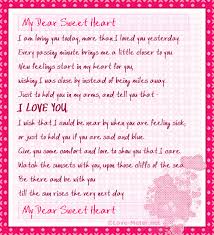 My Dear Sweet Heart
I am loving you today, more than I loved you yesterday.
Every passing minute brings me a little closer to you
New feelings start in my heart for you,
wishing I was close by instead of being miles away.
Just to hold you in my arms, and tell you that -
I LOVE YOU.
I wish that I could be near by when you are feeling sick,
or just to hold you if you are sad and blue.
Give you some comfort and love to show you that I care.
Watch the sunsets with you, upon those cliffs of the sea.
Be there and be with you
till the sun rises the very next day.
My Dear Sweet Heart